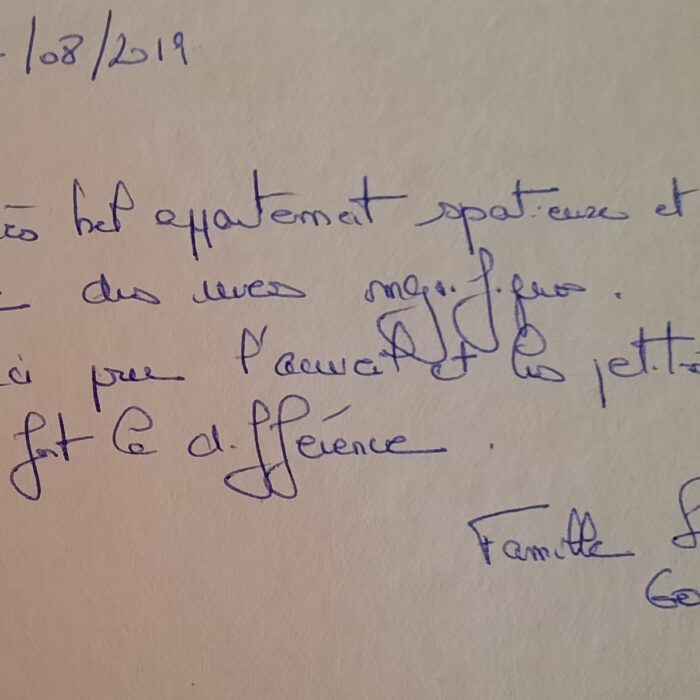 /08/2019
bel appartement spatieuse et
des vues magnifiques.
ci pour l'accueil et les petit
font la différence.
Famille